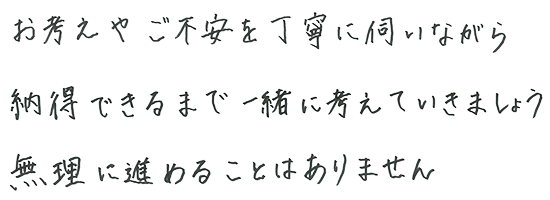 お考えやご不安を丁寧に伺いながら
納得できるまで一緒に考えていきましょう
無理に進めることはありません